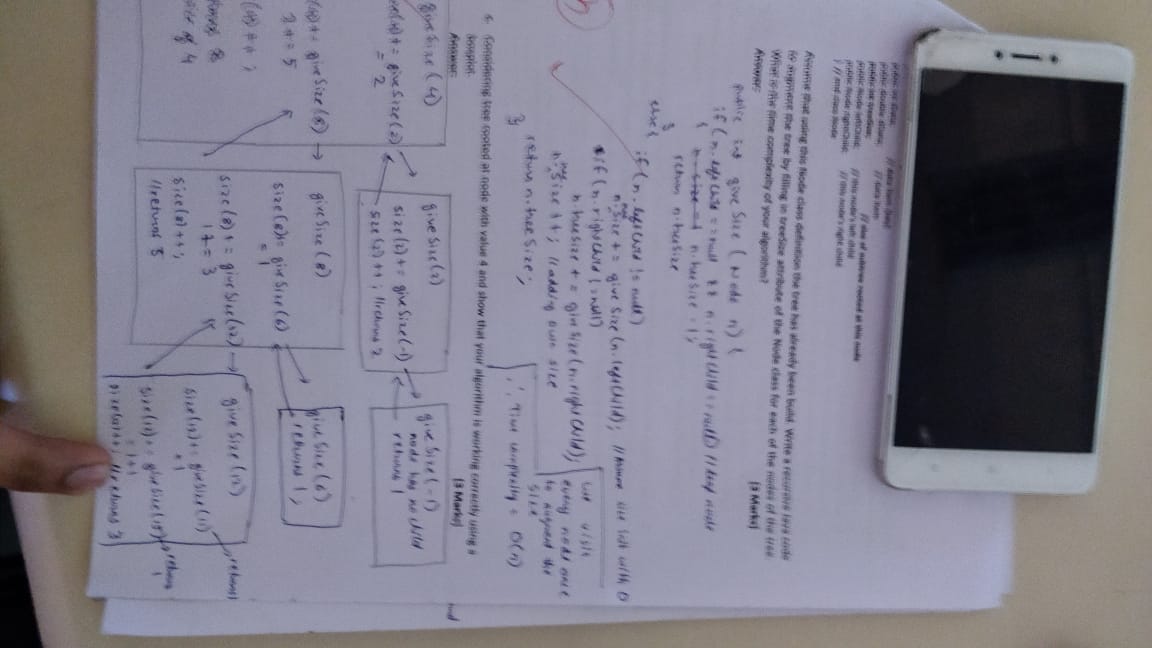 // data item
// size of subtree rooted at this node
// this node's left child
// this node's right child
Assume that using this Node class definition the tree has already been build. Write a recursive Java code
to augment the tree by filling in treeSize attribute of the Node class for each of the nodes of the tree.
What is the time complexity of your algorithm? [3 Marks]
Answer:
public int give Size ( Node n) {
if (n.left Child == null && n.right Child == null) // leaf node
{ n.treeSize = 1;
return n.treeSize
}
else {
if (n.left Child != null)
n.treeSize += give Size (n.leftChild); // Assume size init with 0
if (n.rightChild != null)
n.treeSize += give Size (n.right Child);
n.treeSize ++; // adding own size
return n.treeSize;
}
we visit
every node once
to augment the
size
∴ Time complexity = O(n)
c. Considering tree rooted at node with value 4 and show that your algorithm is working correctly using a
[3 Marks]
Answer:
give Size (4)
+= give Size (2)
= 2
+= give Size (8)
2 += 5
++ ;
8
of 4
give Size (2)
size (2) += give Size (-1)
size (2) ++ ; // returns 2
give Size (-1)
node has no child
returns 1
give Size (8)
size (8) += give Size (6)
= 1
size (8) += give Size (12)
1 += 3
size (8) ++ ;
// returns 5
give Size (6)
returns 1 ;
give Size (12)
size (12) += give Size (11)
= 1
returns 1
size (12) += give Size (15)
= 1+1
returns 1
size (12) ++ ; // returns 3